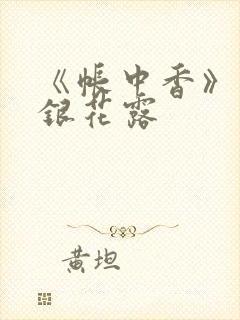 《帐中香》
银花露
黄坦